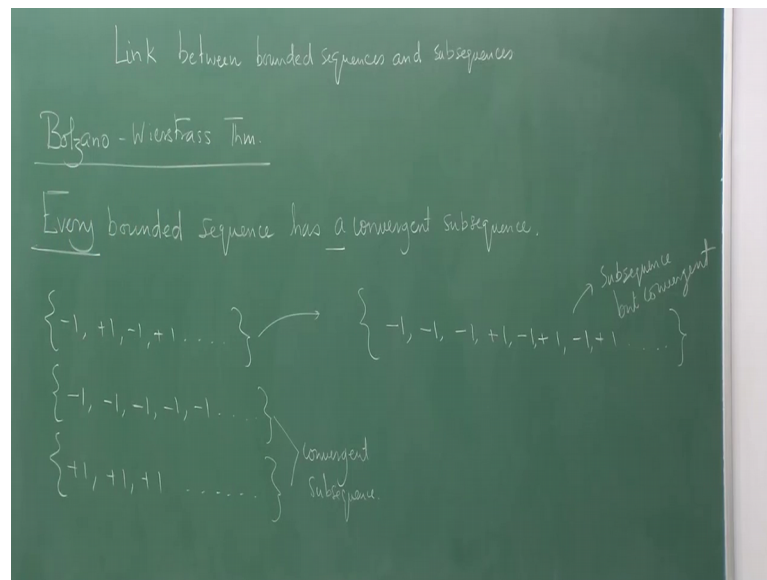 Link between bounded sequences and subsequences
Bolzano - Wierstrass Thm.
Every bounded sequence has a convergent subsequence.
{-1, +1, -1, +1 . . . . . }
{-1, -1, -1, +1, -1, +1, -1, +1 . . . . . }
Subsequence
but convergent
{-1, -1, -1, -1, -1 . . . . }
{+1, +1, +1 . . . . . . }
Convergent
Subsequence.